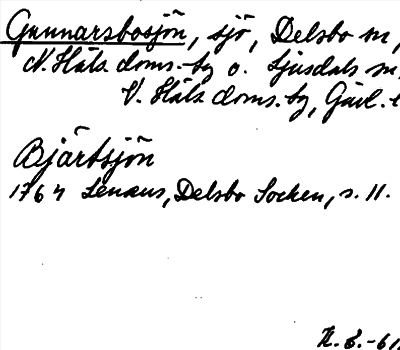 Gunnarsbosjön, sjö, Delsbo sn,
N. Häls. doms.-bg o. Ljusdals sn,
V. Häls. doms.-bg, Gävl. l
Bjärtsjön
1764 Lenæus, Delsbo Socken, s. 11.
K. E. -61.